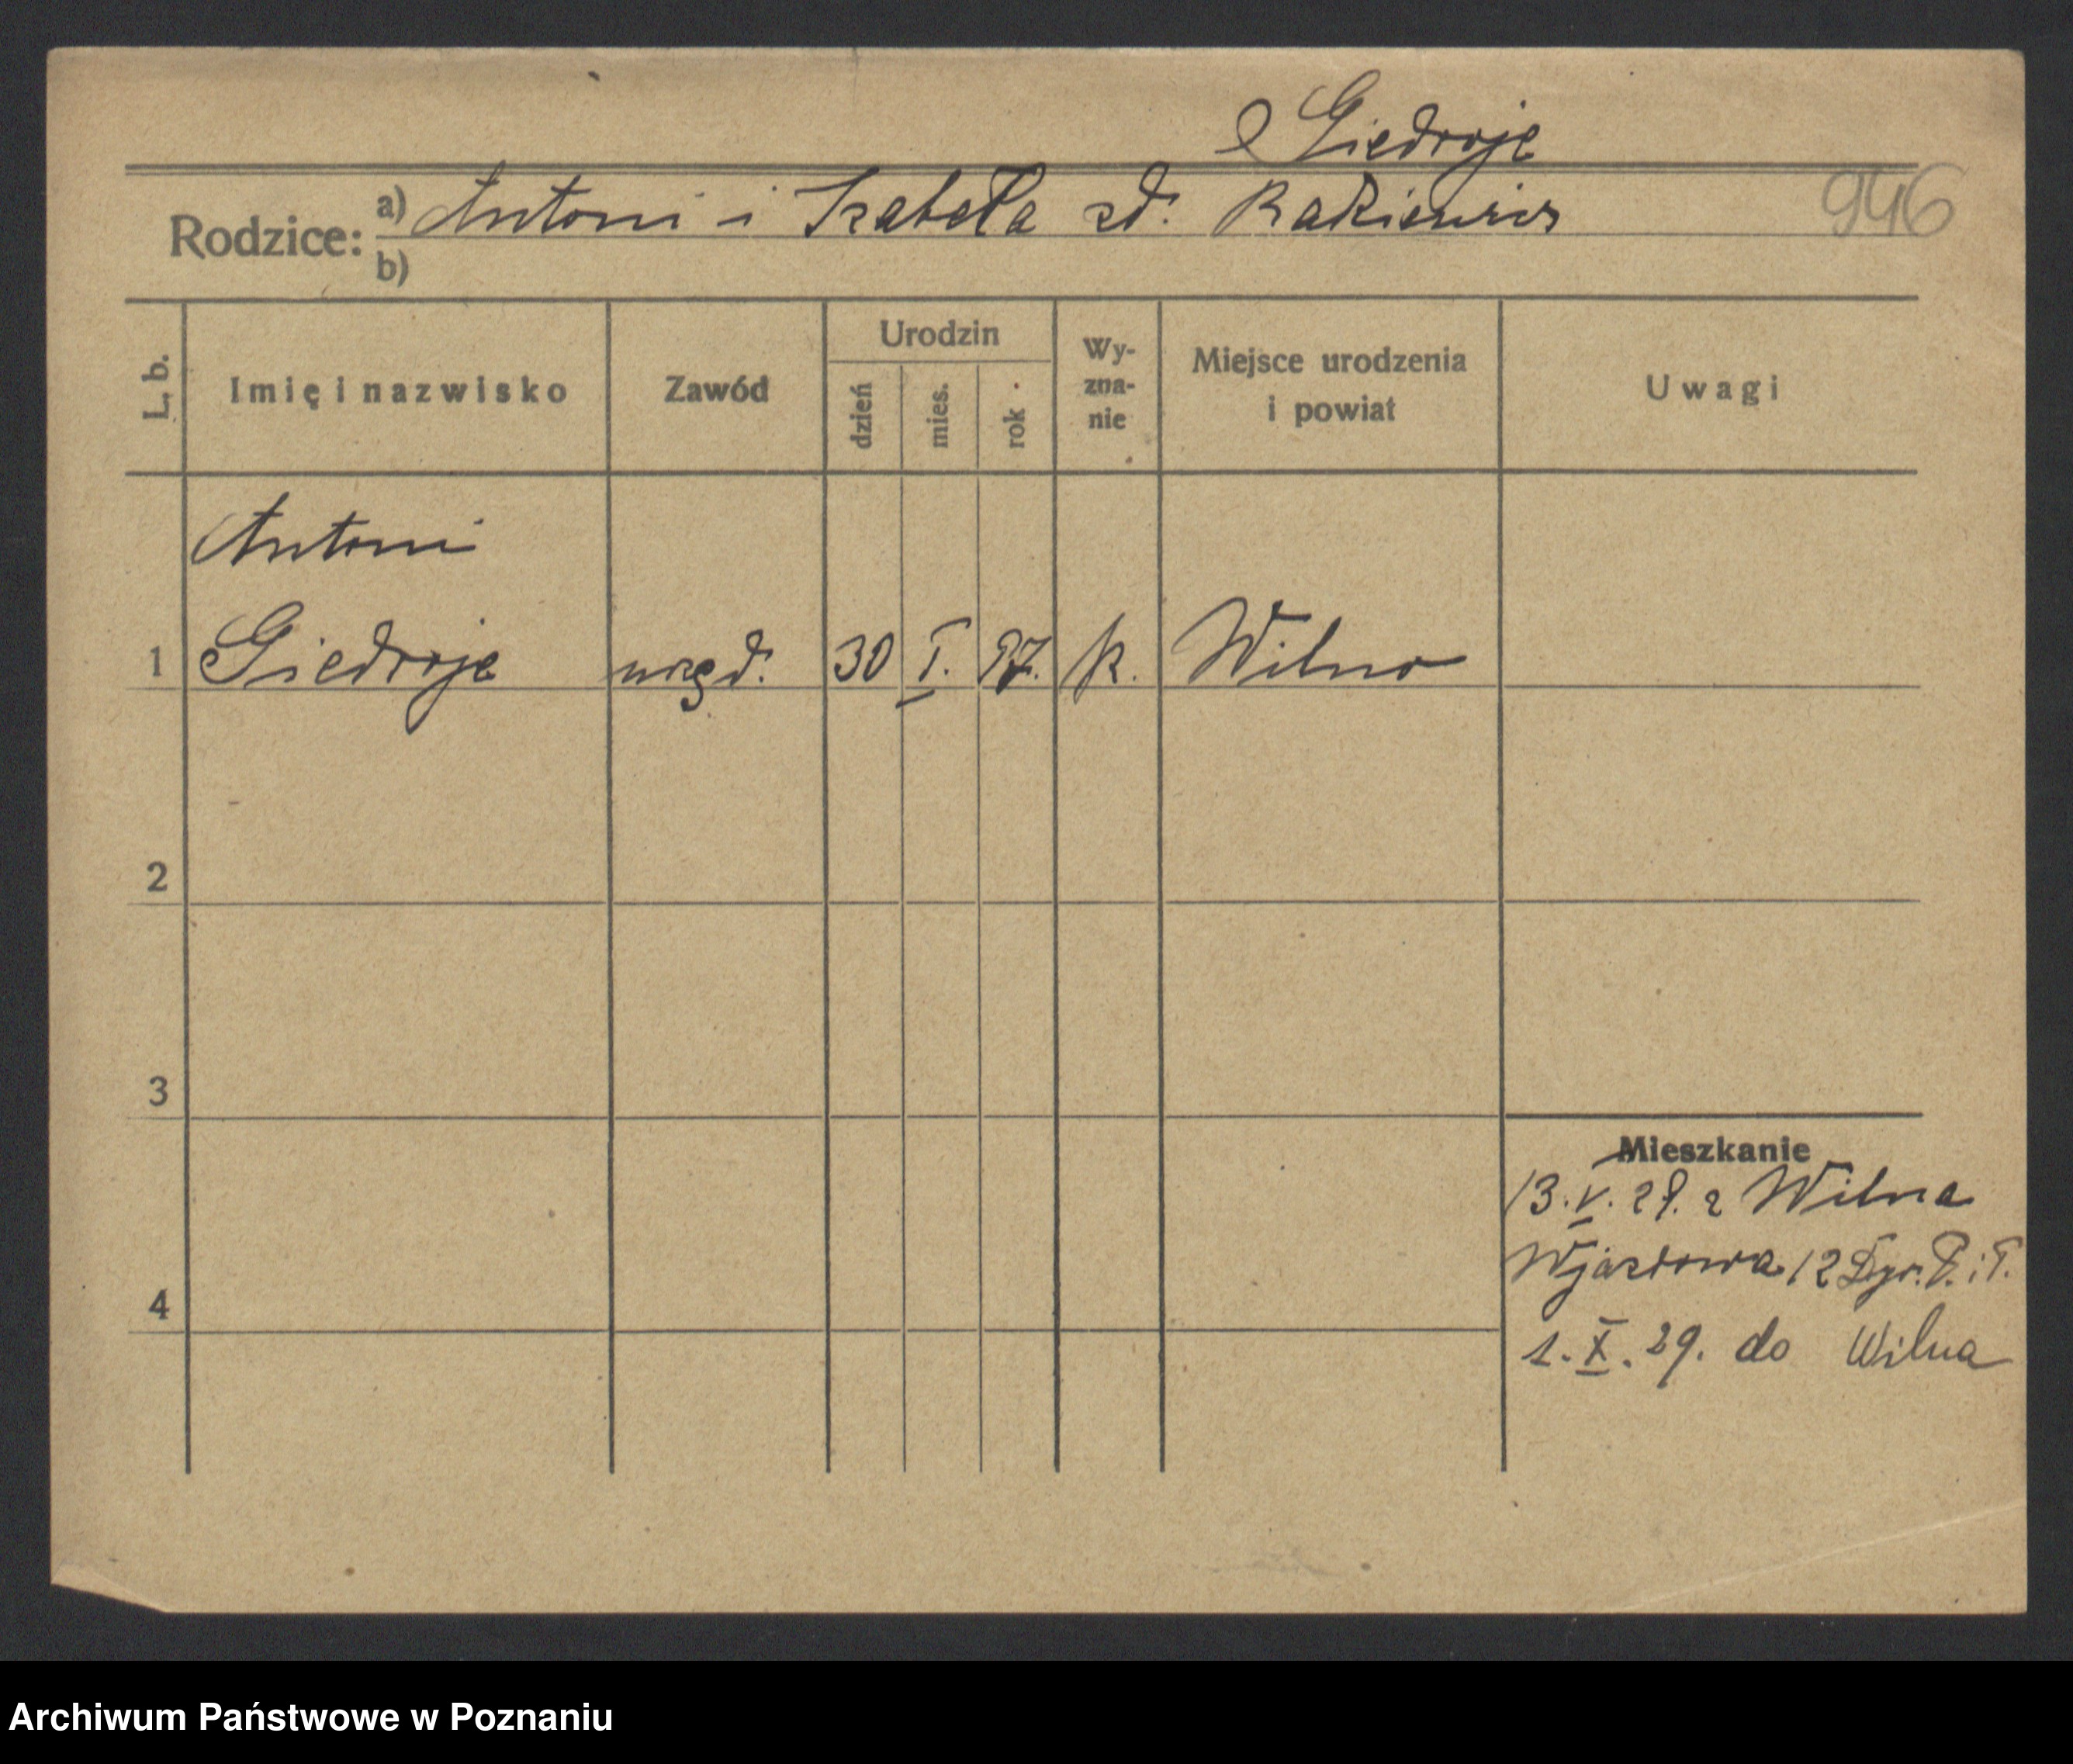 Giedroje
Rodzice: a) Antoni i Izabeła zd. Rakiewicz
946
b)
L. b.
Imię i nazwisko
Zawód
Urodzin
dzień
mies.
rok
Wy-
zna-
nie
Miejsce urodzenia
i powiat
Uwagi
Antoni
1 Giedroje urzęd. 30 I. 97. k. Wilno
2
3
Mieszkanie
13.V.29. z Wilna
Wjazdowa 12 Dyr. P. i T.
4
1.X.29. do Wilna
Archiwum Państwowe w Poznaniu